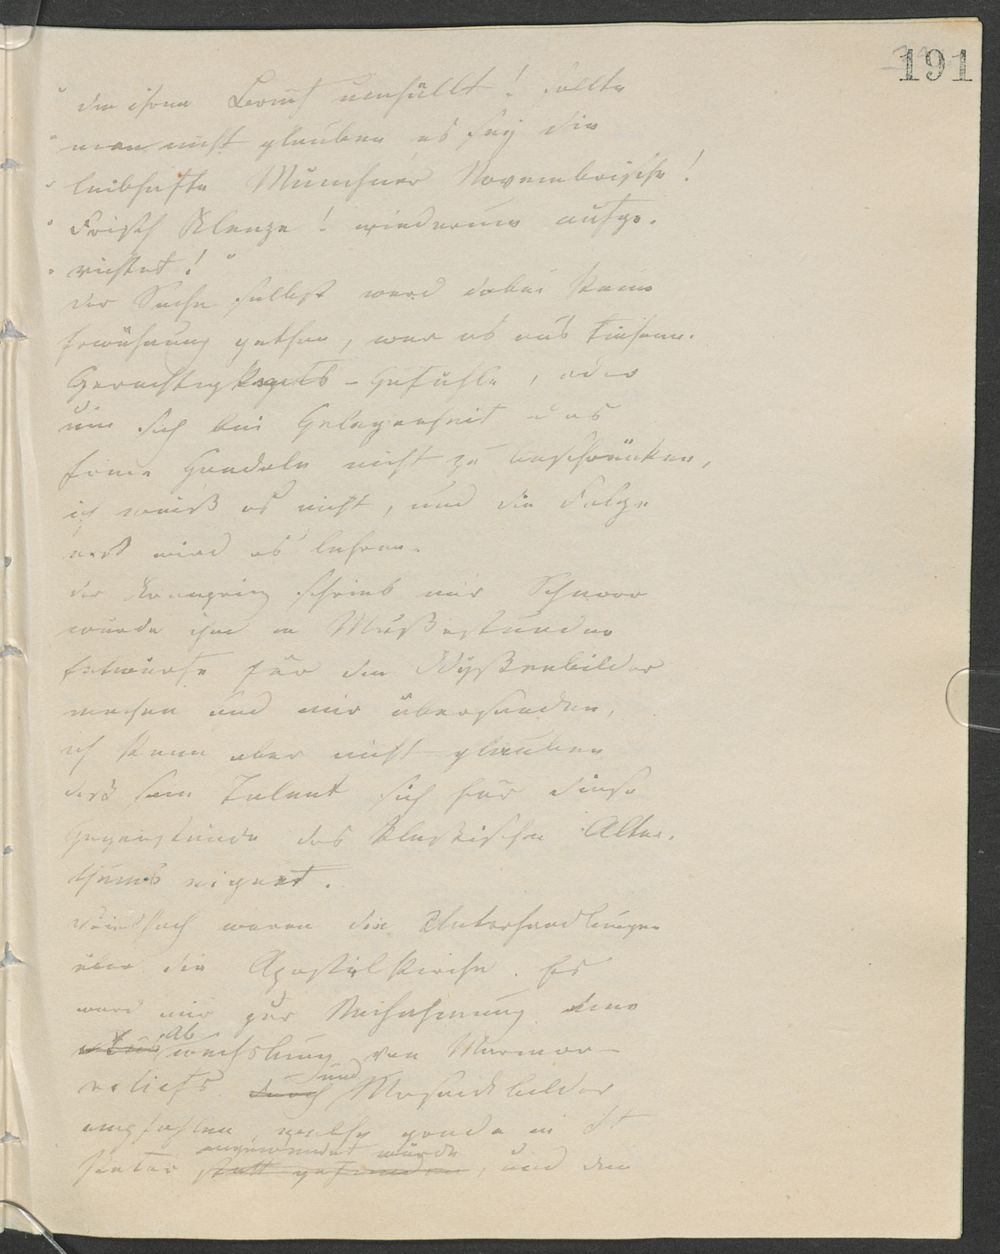 191
" den ihrem Beruf umhüllt! sollte
" man nicht glauben es sey die
" leibhafte Münchner Novembrische!
" Frisch Klenze! wiederum aufge-
" richtet!"
Der Sache selbst ward dabei keine
Erwähnung gethan, war es aus
Gerechtigkeits-Gefühle, oder
um sich bei Gelegenheit das
Handeln nicht zu beschränken,
ich weiß es nicht, und die Folge
wird es lehren.
Der Kronprinz schrieb mir Schnorr
würde ihm in Mußestunden
Entwürfe für die Odyßeebilder
machen und mir übersenden,
ich kann aber nicht glauben
daß sein Talent sich für diese
Gegenstände des klaßischen Alter-
thums eignet.
Vielfach waren die Unterhandlungen
über die Apostelkirche. Es
ward mir zur Nachahmung eine
Abwechslung von Marmor-
reliefs durch und Mosaikbilder
empfohlen welche grade in St
Peter statt gefunden angewendet wurde, und den